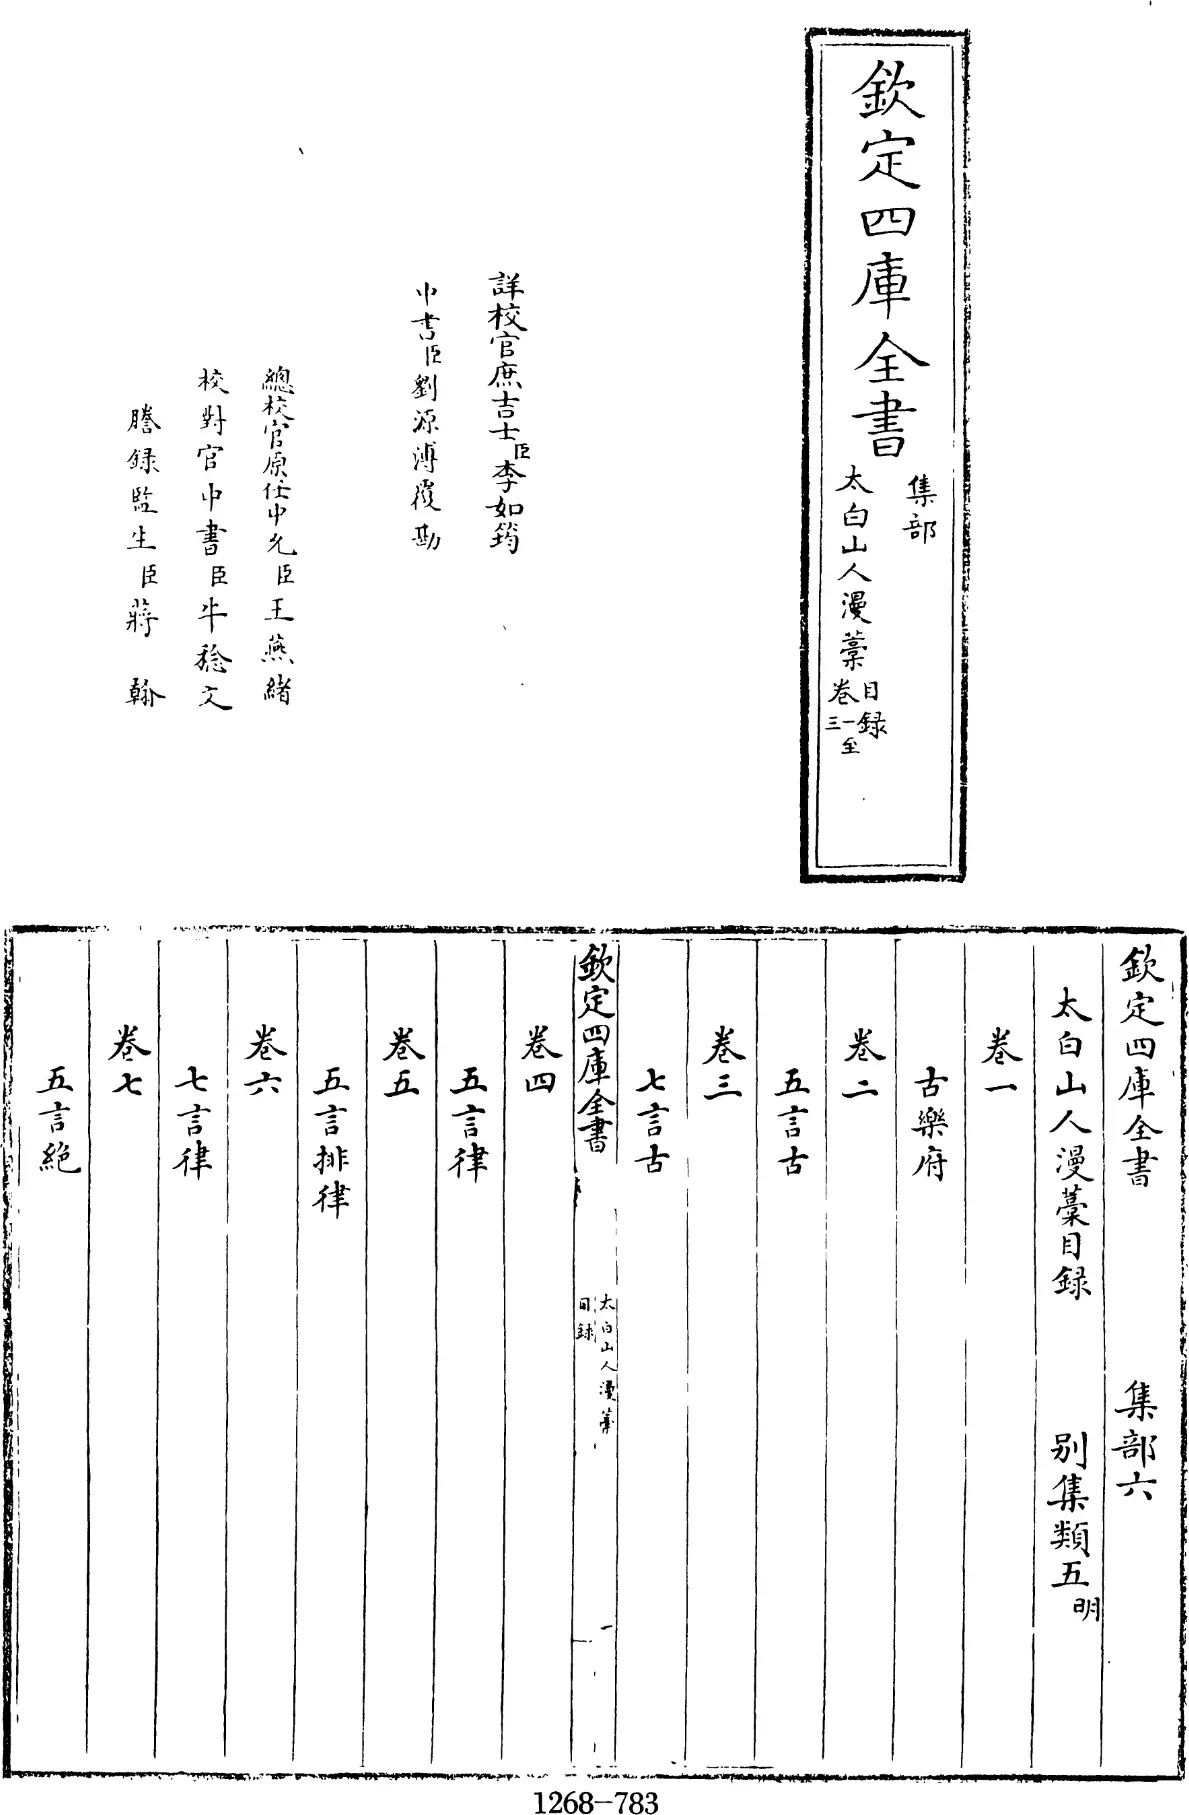 欽定四庫全書
集部
太白山人漫藁
目録
卷一至
三
詳校官庶吉士臣李如筠
中書臣劉源溥覆勘
總校官原任中允臣王燕緒
校對官中書臣牛稔文
謄録監生臣蔣翰
欽定四庫全書 集部六
太白山人漫藁目録 别集類五明
卷一
古樂府
卷二
五言古
卷三
七言古
欽定四庫全書
太白山人漫藁
目録
一
卷四
五言律
卷五
五言排律
卷六
七言律
卷七
五言絶
1268-783